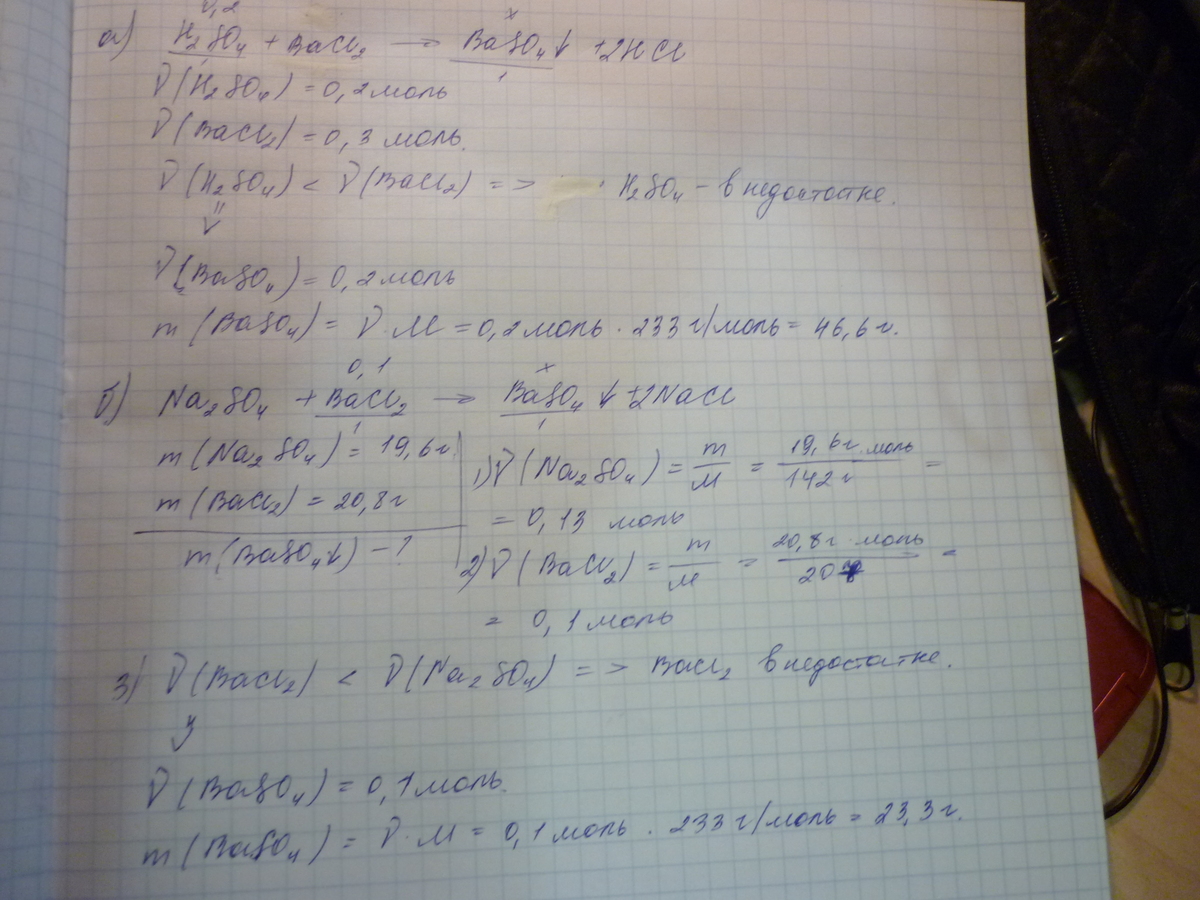 0,2 x
а) H₂SO₄ + BaCl₂ → BaSO₄↓ +2HCl
1 1
ν(H₂SO₄) = 0,2 моль
ν(BaCl₂) = 0,3 моль.
ν(H₂SO₄) < ν(BaCl₂) => H₂SO₄ – в недостатке.
ν(BaSO₄) = 0,2 моль
m(BaSO₄) = ν·M = 0,2 моль · 233 г/моль = 46,6 г.
0,1 x
б) Na₂SO₄ + BaCl₂ → BaSO₄↓ +2NaCl
1 1
m(Na₂SO₄) = 19,6 г
m(BaCl₂) = 20,8 г
m(BaSO₄↓) – ?
1) ν(Na₂SO₄) = m/M = 19,6 г·моль/142 г =
= 0,13 моль
2) ν(BaCl₂) = m/M = 20,8 г·моль/208 =
= 0,1 моль
3) ν(BaCl₂) < ν(Na₂SO₄) => BaCl₂ в недостатке.
ν(BaSO₄) = 0,1 моль.
m(BaSO₄) = ν·M = 0,1 моль · 233 г/моль = 23,3 г.